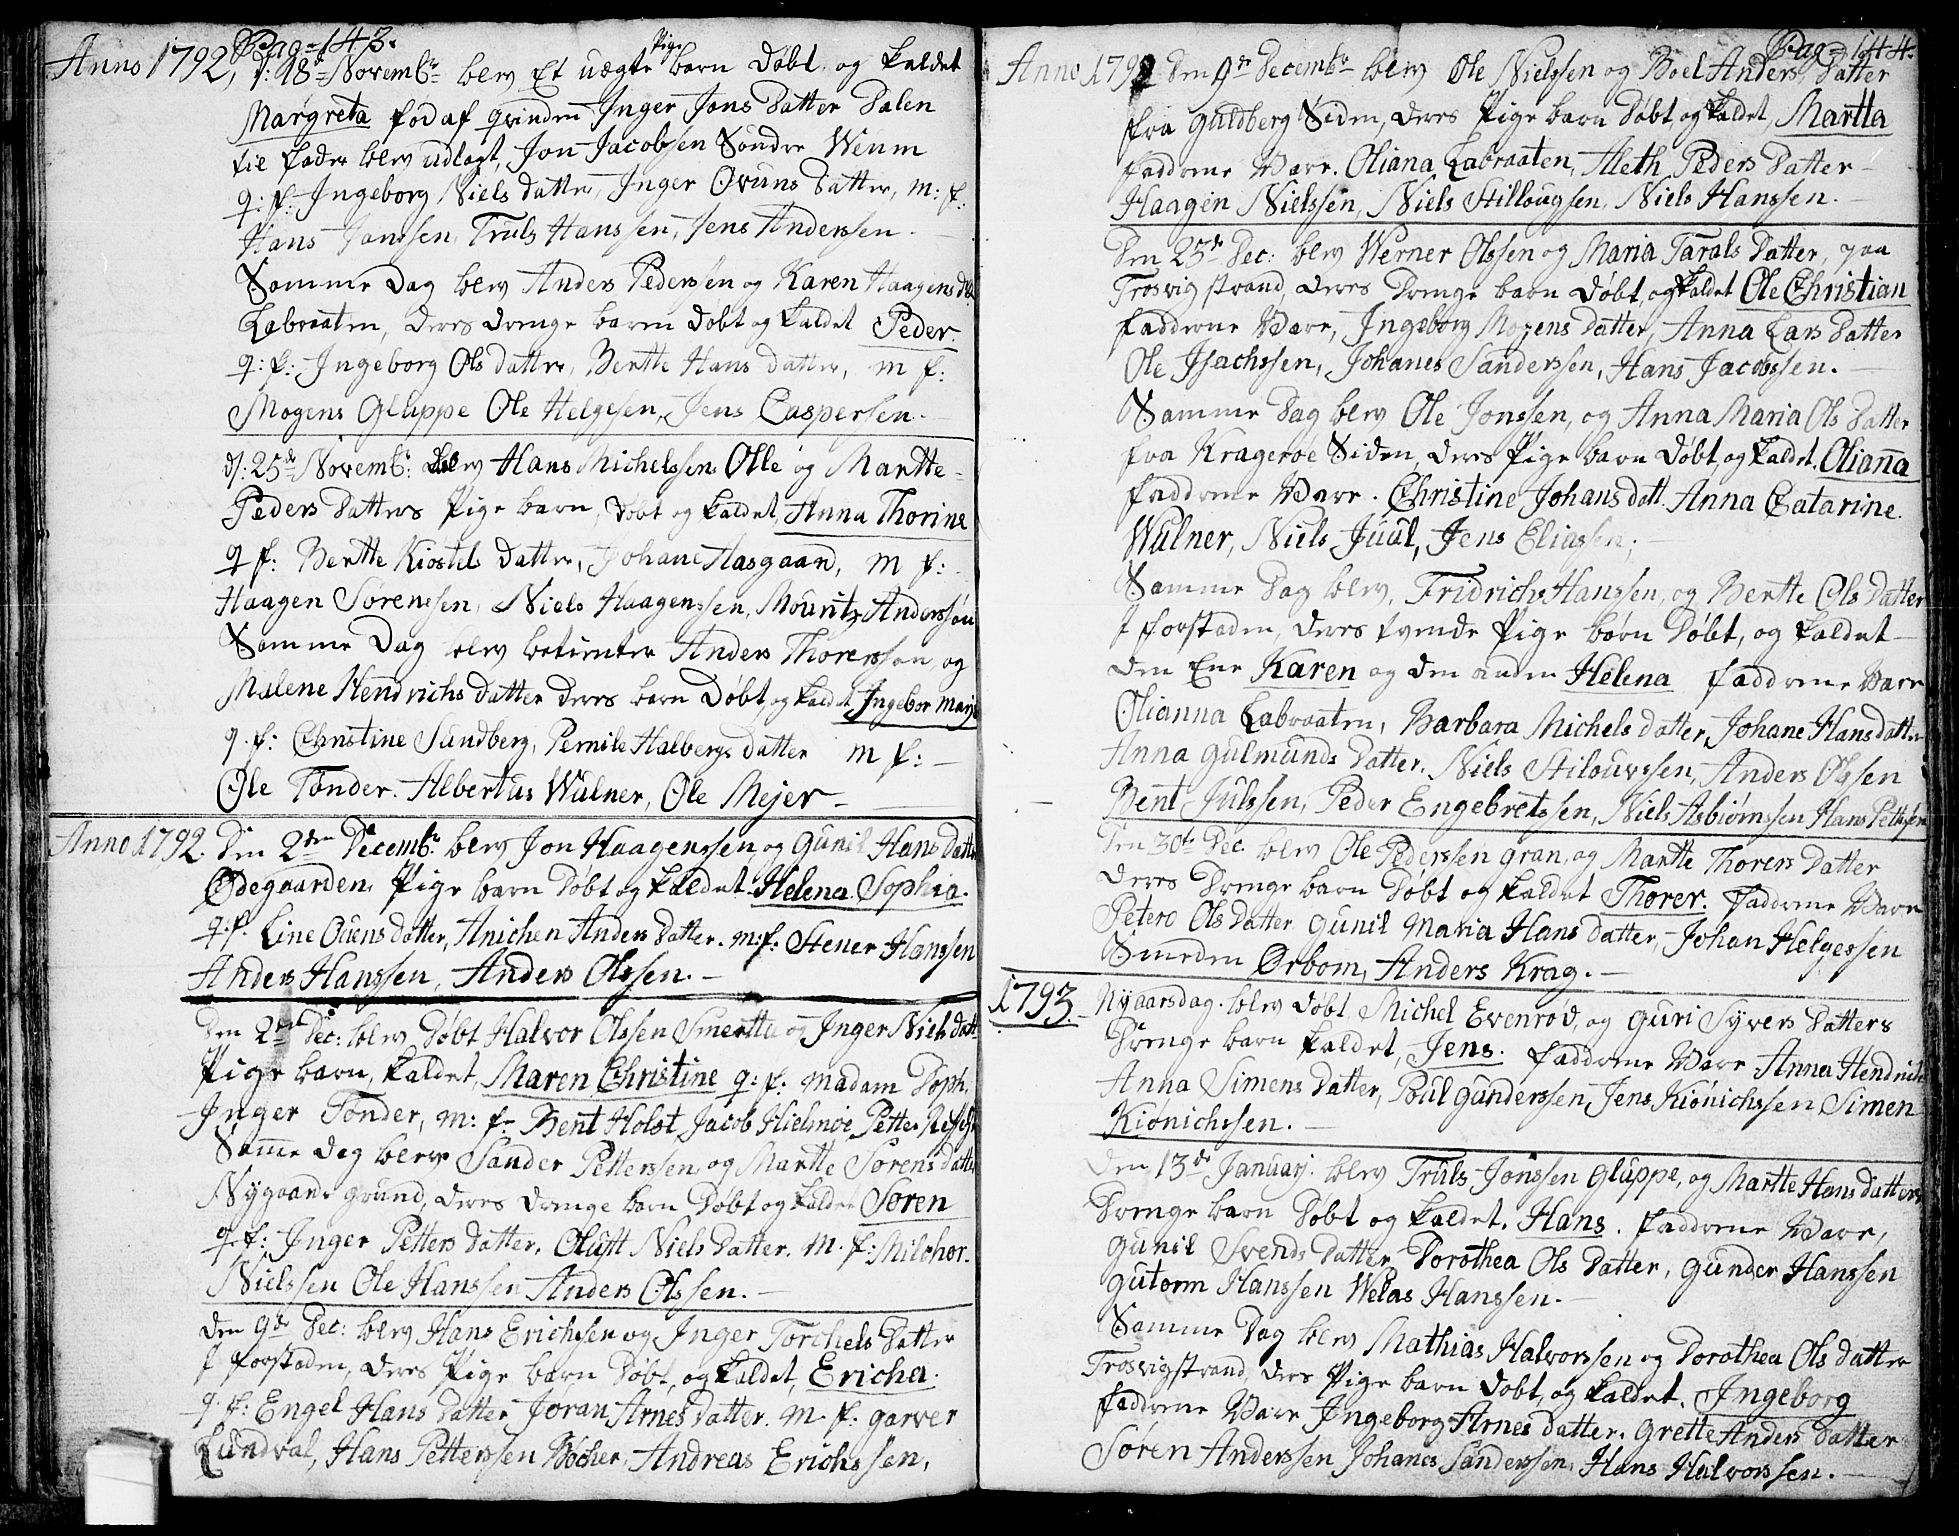 Pag: 143.
Anno 1792, d: 18de Novembr blev Et uægte Pige barn Døbt og kaldet
Margreta fød af qvinden Inger Jons Datter Dalen
til fader blev udlagt, Jon Jacobsen Søndre Weum
q: f: Ingeborg Niels datter, Inger Ovuns Datter, m: f:
Hans Janssen, Truls Hanssen, Jens Anderssen.
Samme Dag blev Anders Pederssen og Karen Haagens dtr
Labraaten, deres drenge barn døbt og kaldet Peder.
q: f: Ingeborg Ols datter, Berthe Hans datter, m f:
Mogens Gluppe Ole Helgesen, Jens Caspersen.
d: 25de Novembr: blev Hans Michelssen Olle og Marthe
Peders Datters Pige barn, døbt og kaldet, Anna Thorine
q f: Berthe Kiostels datter, Johane Hasgaard, m f:
Haagen Sørenssen, Niels Haagenssen, Mouritz Anderssøn
Samme Dag blev betienter Anders Thorerssøn, og
Malene Hendrichs datter deres barn Døbt, og kaldet Ingebor Marja
q. f: Christine Sundberg, Pernile Halbergs datter m f:
Ole Tønder. Albertus Wulner, Ole Mejer
Anno 1792. Den 2den Decembr blev Jon Haagenssen og Gunil Hans datter
Ødegaarden, Pige barn Døbt og kaldet Helena Sophia.
q. f. Line Ouens datter, Anichen Anders Datter. m: f: Stener Hanssen
Anders Hanssen, Anders Olssen.
Den 2den Dec: blev Døbt Halvor Olssen Smertte og Inger Niels datt
Pige barn, kaldet, Maren Christine q: f: Madam Doph.
Inger Tønder, m: f Bent Holst Jacob Hielmøe Petter
Samme dag blev Sander Petterssen og Marthe Sørens datter
Nygaards grund, deres drenge barn Døbt og kaldet Søren
q. f: Inger Petters datter, Olutt Niels Datter. m. f: Milchor
Nielssen Ole Hanssen Anders Olssen.
den 9de Dec: blev Hans Erichsen og Inger Torchels Datter
i Forstaden, deres Pige barn Døbt, og kaldet, Ericha.
q. f: Engel Hans datter, Joran Arnes datter. m. f. Garver
Lundval, Hans Petterssen Bøcher, Andreas Erichssen,
Pag: 144.
Anno 1792 den 9de Decembr blev Ole Nielssen og Boel Anders Datter
fra Guldberg Siden, deres Pige barn Døbt, og kaldet, Martta
fadderne Vare. Oliana Labraaten, Aleth Peders Datter
Haagen Nielssen, Niels Stillougsen, Niels Hanssen.
Den 25de Dec: blev Werner Olssen og Maria Tarals Datter, paa
Trosvig strand, deres Drenge barn Døbt, og kaldet Ole Christian
fadderne Vare, Ingeborg Mogens datter, Anna Lars Datter
Ole Isachssen, Johanes Sanderssen, Hans Jacobssen.
Samme Dag blev Ole Jonssen, og Anna Maria Ols Datter
fra Kragerøe Siden, deres Pige barn Døbt, og kaldet, Olianna
fadderne Vare. Christine Johans datt. Anna Catarine
Wulner, Niels Juul, Jens Eliassen;
Samme Dag blev, Fridrich Hanssen, og Berthe Ols Datter
i Forstaden, deres tvende Pige børn Døbt, og kaldet
den Ene Karen og den anden Helena fadderne Vare
Olianna Labraaten, Barbara Michels datter, Johane Hans datter
Anna Gulmunds Datter. Niels Stilouvssen, Anders Olssen
Bent Julssen, Peder Engebretssen, Niels Asbiørnssen Hans Pettersen
Den 30te Dec. blev Ole Pederssen Gran, og Marthe Thorers Datter
deres Drenge barn Døbt og kaldet Thorer. fadderne Vare
Petero Ols Datter Gunil Maria Hans Datter, Johan Helgessen
Smeden Ørbom, Anders Krag.
1793. Nyaarsdag. blev døbt Michel Evenrød, og Guri Syvers Datters
Drenge barn kaldet, Jens. fadderne Vare Anna Hendrichs
Anna Simens Datter, Poul Gunderssen, Jens Kiønichssen Simen
Kiønichssen.
Den 13de Januarj. blev Truls Jonssen Gluppe, og Marthe Hans datters
Drenge barn Døbt og kaldet. Hans. fadderne Vare,
Gunil Svends Datter, Dorothea Ols Datter, Gunder Hanssen
Gutorm Hanssen Welas Hanssen.
Samme Dag blev Mathias Halvorssen og Dorothea Ols datter
Trosvigstrand, deres Pige barn døbt, og kaldet. Ingeborg
fadderne Vare Ingeborg Arnes datter. Grette Anders Datter
Søren Anderssen Johanes Sanderssen, Hans Halvorssen.